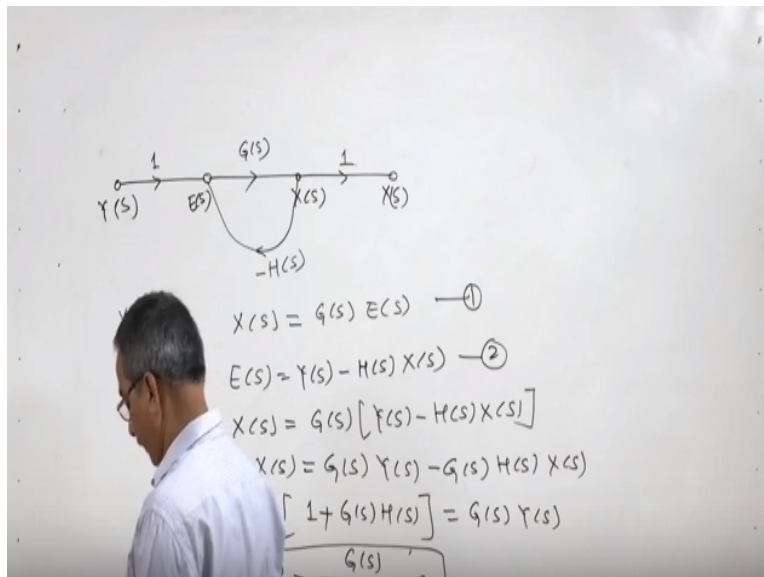 1 G(S) 1
Y(S) E(S) X(S) X(S)
-H(S)
X(S) = G(S) E(S) — 1
E(S) = Y(S) - H(S) X(S) — 2
X(S) = G(S) [Y(S) - H(S) X(S)]
X(S) = G(S) Y(S) - G(S) H(S) X(S)
[1 + G(S) H(S)] = G(S) Y(S)
G(S)